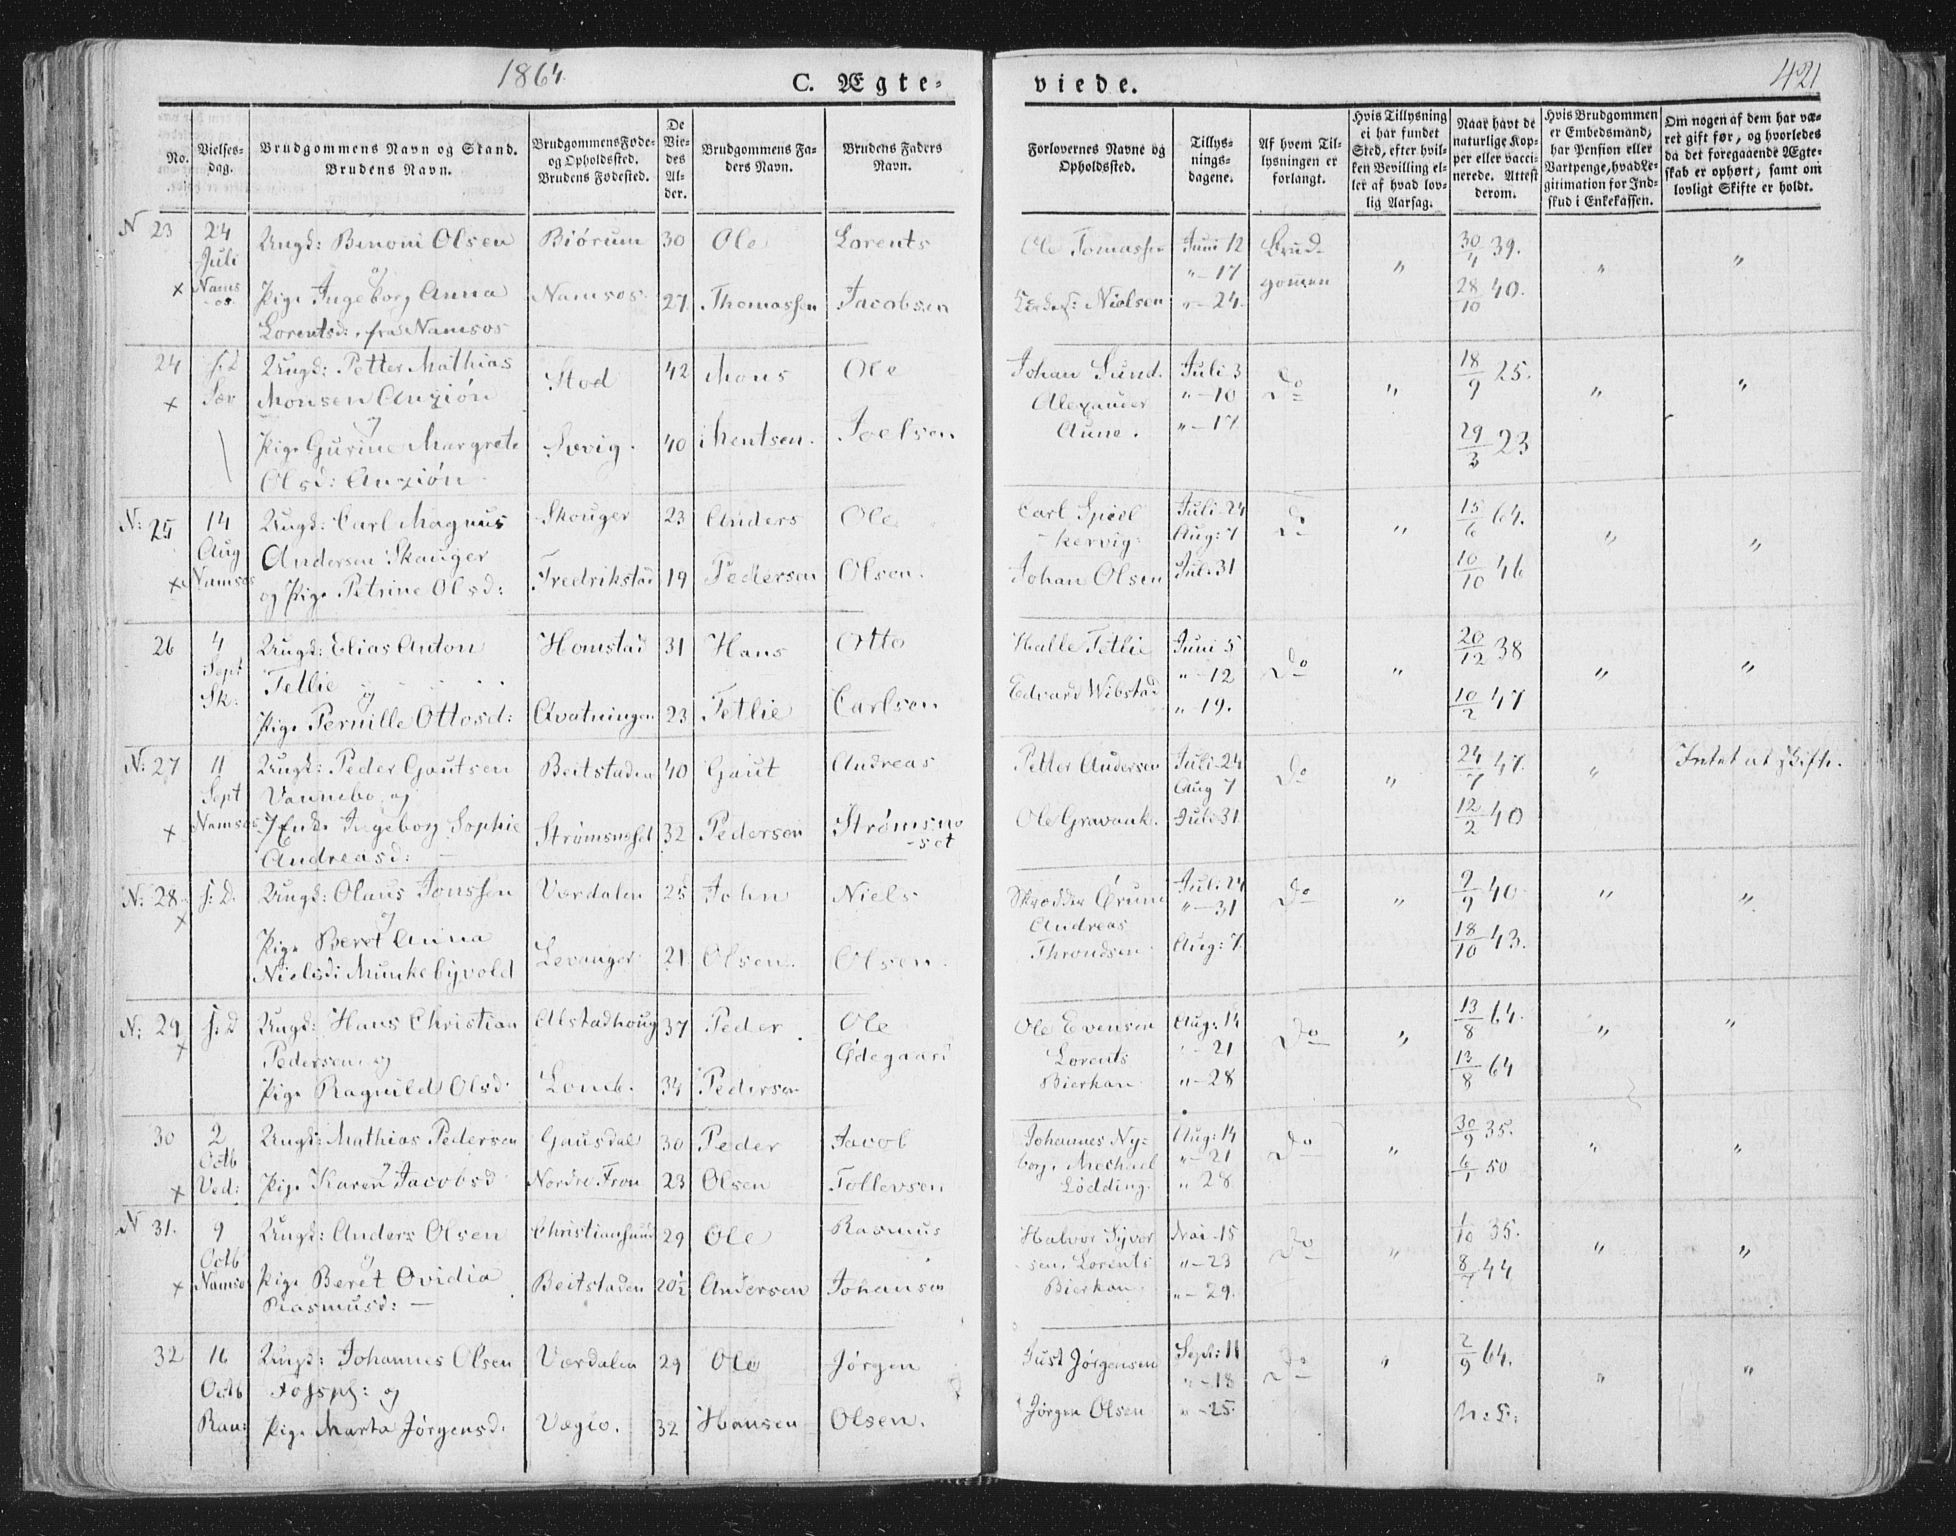 1864
C. Ægte-
viede.
421
No.
Vielses-
dag.
Brudgommens Navn og Stand.
Brudens Navn.
Brudgommens Føde-
og Opholdssted.
Brudens Fødested.
De
Vie-
des
Al-
der.
Brudgommens Fa-
ders Navn.
Brudens Faders
Navn.
Forlovernes Navne og
Opholdssted.
Tillys-
nings-
dagene.
Af hvem Til-
lysningen er
forlangt.
Hvis Tillysning
ei har fundet
Sted, efter hvil-
ken Bevilling el-
ler af hvad lov-
lig Aarsag.
Naar havt de
naturlige Kop-
per eller vacci-
nerede. Attest
derom.
Hvis Brudgommen
er Embedsmand,
har Pension eller
Vartpenge, hvad Le-
gitimation for Ind-
skud i Enkekassen.
Om nogen af dem har væ-
ret gift før, og hvorledes
da det foregaaende Ægte-
skab er ophørt, samt om
lovligt Skifte er holdt.
N 23 24 Ungk: Benoni Olsen Biörum 30 Ole Lorents Ole Tomassen Juni 12 Brud- 30/4 39.
Juli og " - 17 " " "
x Nams Pige Ingeborg Anna Namsos 27 Thomassen Jacobsen Nielsen " - 24 gommen 28/10 40.
-os. Lorentsd: fra Namsos
24 s: D Ungk: Petter Mathias Stod 42 Mons Ole Johan Lund. Juli 3 Do 18/9 25.
x Sæv Monsen Anziön Alexander " - 10 " " "
og Aune. " - 17
Pige Gurine Margrete Sævig. 40 Mentsen. Joelsen 29/3 23
Olsd: Anziön
N: 25 14 Ungk: Carl Magnus Skouger 23 Anders Ole Carl Spiel Juli 24 Do 15/6 64.
Aug Andersen Skauger -kervig: Aug: 7 " " "
x Namsos og Pige Petrine Olsd: Fredrikstad 19 Pedersen Olsen. Johan Olsen Juli 31 10/10 46
26 4 Ungk: Elias Anton Homstad 31 Hans Otto Halle Fetlie Juni 5 20/12 38
Sept Fetlie og " - 12 Do " " "
Sk. Pige Pernille Ottosd: Qvatningen 23 Fetlie Carlsen Edvard Wibstad " 19. 10/2 47
N: 27 11 Ungk: Peder Gautsen Beitstaden 40 Gaut Andreas Petter Andersen Juli 24 Do 24/7 47. Intet at skifte.
Sept Vannebo og Aug 7 " "
x Namsos Enke Ingeborg Sophie Strømsneset 32 Pedersen Strømsne Ole Gravank. Juli 31 12/2 40
Andreasd: -set
N: 28 s: D. Ungk: Olaus Jonssen Værdalen 25 John Niels Skrædder Ørum Juli 24 Do 9/9 40
x og Andreas " - 31 " " "
Pige Beret Anna Levanger 21 Olsen. Olsen. Throndsen. Aug: 7 18/10 43.
Nielsd: Munkebyvold
N: 29 s: D Ungk: Hans Christian Alstadhoug 37 Peder Ole Ole Evensen Aug: 14 13/8 64.
x Pedersen og Ødegaard Lorents " - 21 Do " " "
Pige Ragnild Olsd: Lomb. 34 Pedersen Bierkan " - 28 13/8 64
30 2 Ungk: Mathias Pedersen Gausdal 30 Peder Jacob Johannes Ny- Aug: 14 Do 30/9 35.
Octb og borg. Mechael " - 21 " " "
x Ved: Pige Karen Jacobsd Nordre Fron 23 Olsen Tollevsen Lødding. " 28 6/1 50
N 31. 9 Ungk: Anders Olsen Christiansund 29 Ole Rasmus Halvor Syver Mai - 15 1/10 35.
Octb og sen, Lorents " - 23 Do " " "
x Namsos Pige Beret Ovidia Beitstaden 20½ Andersen Johansen Bierkan. " - 29. 8/7 44
Rasmusd: -
32 16 Ungk: Johannes Olsen Værdalen 29 Ole Jørgen Just Jørgensen Septr: 11 Do 2/9 64.
Octb og " - 18 " " "
Ran: Pige Marta Jørgensd. Vægio. 32 Hansen Olsen. Jørgen Olsen " - 25.